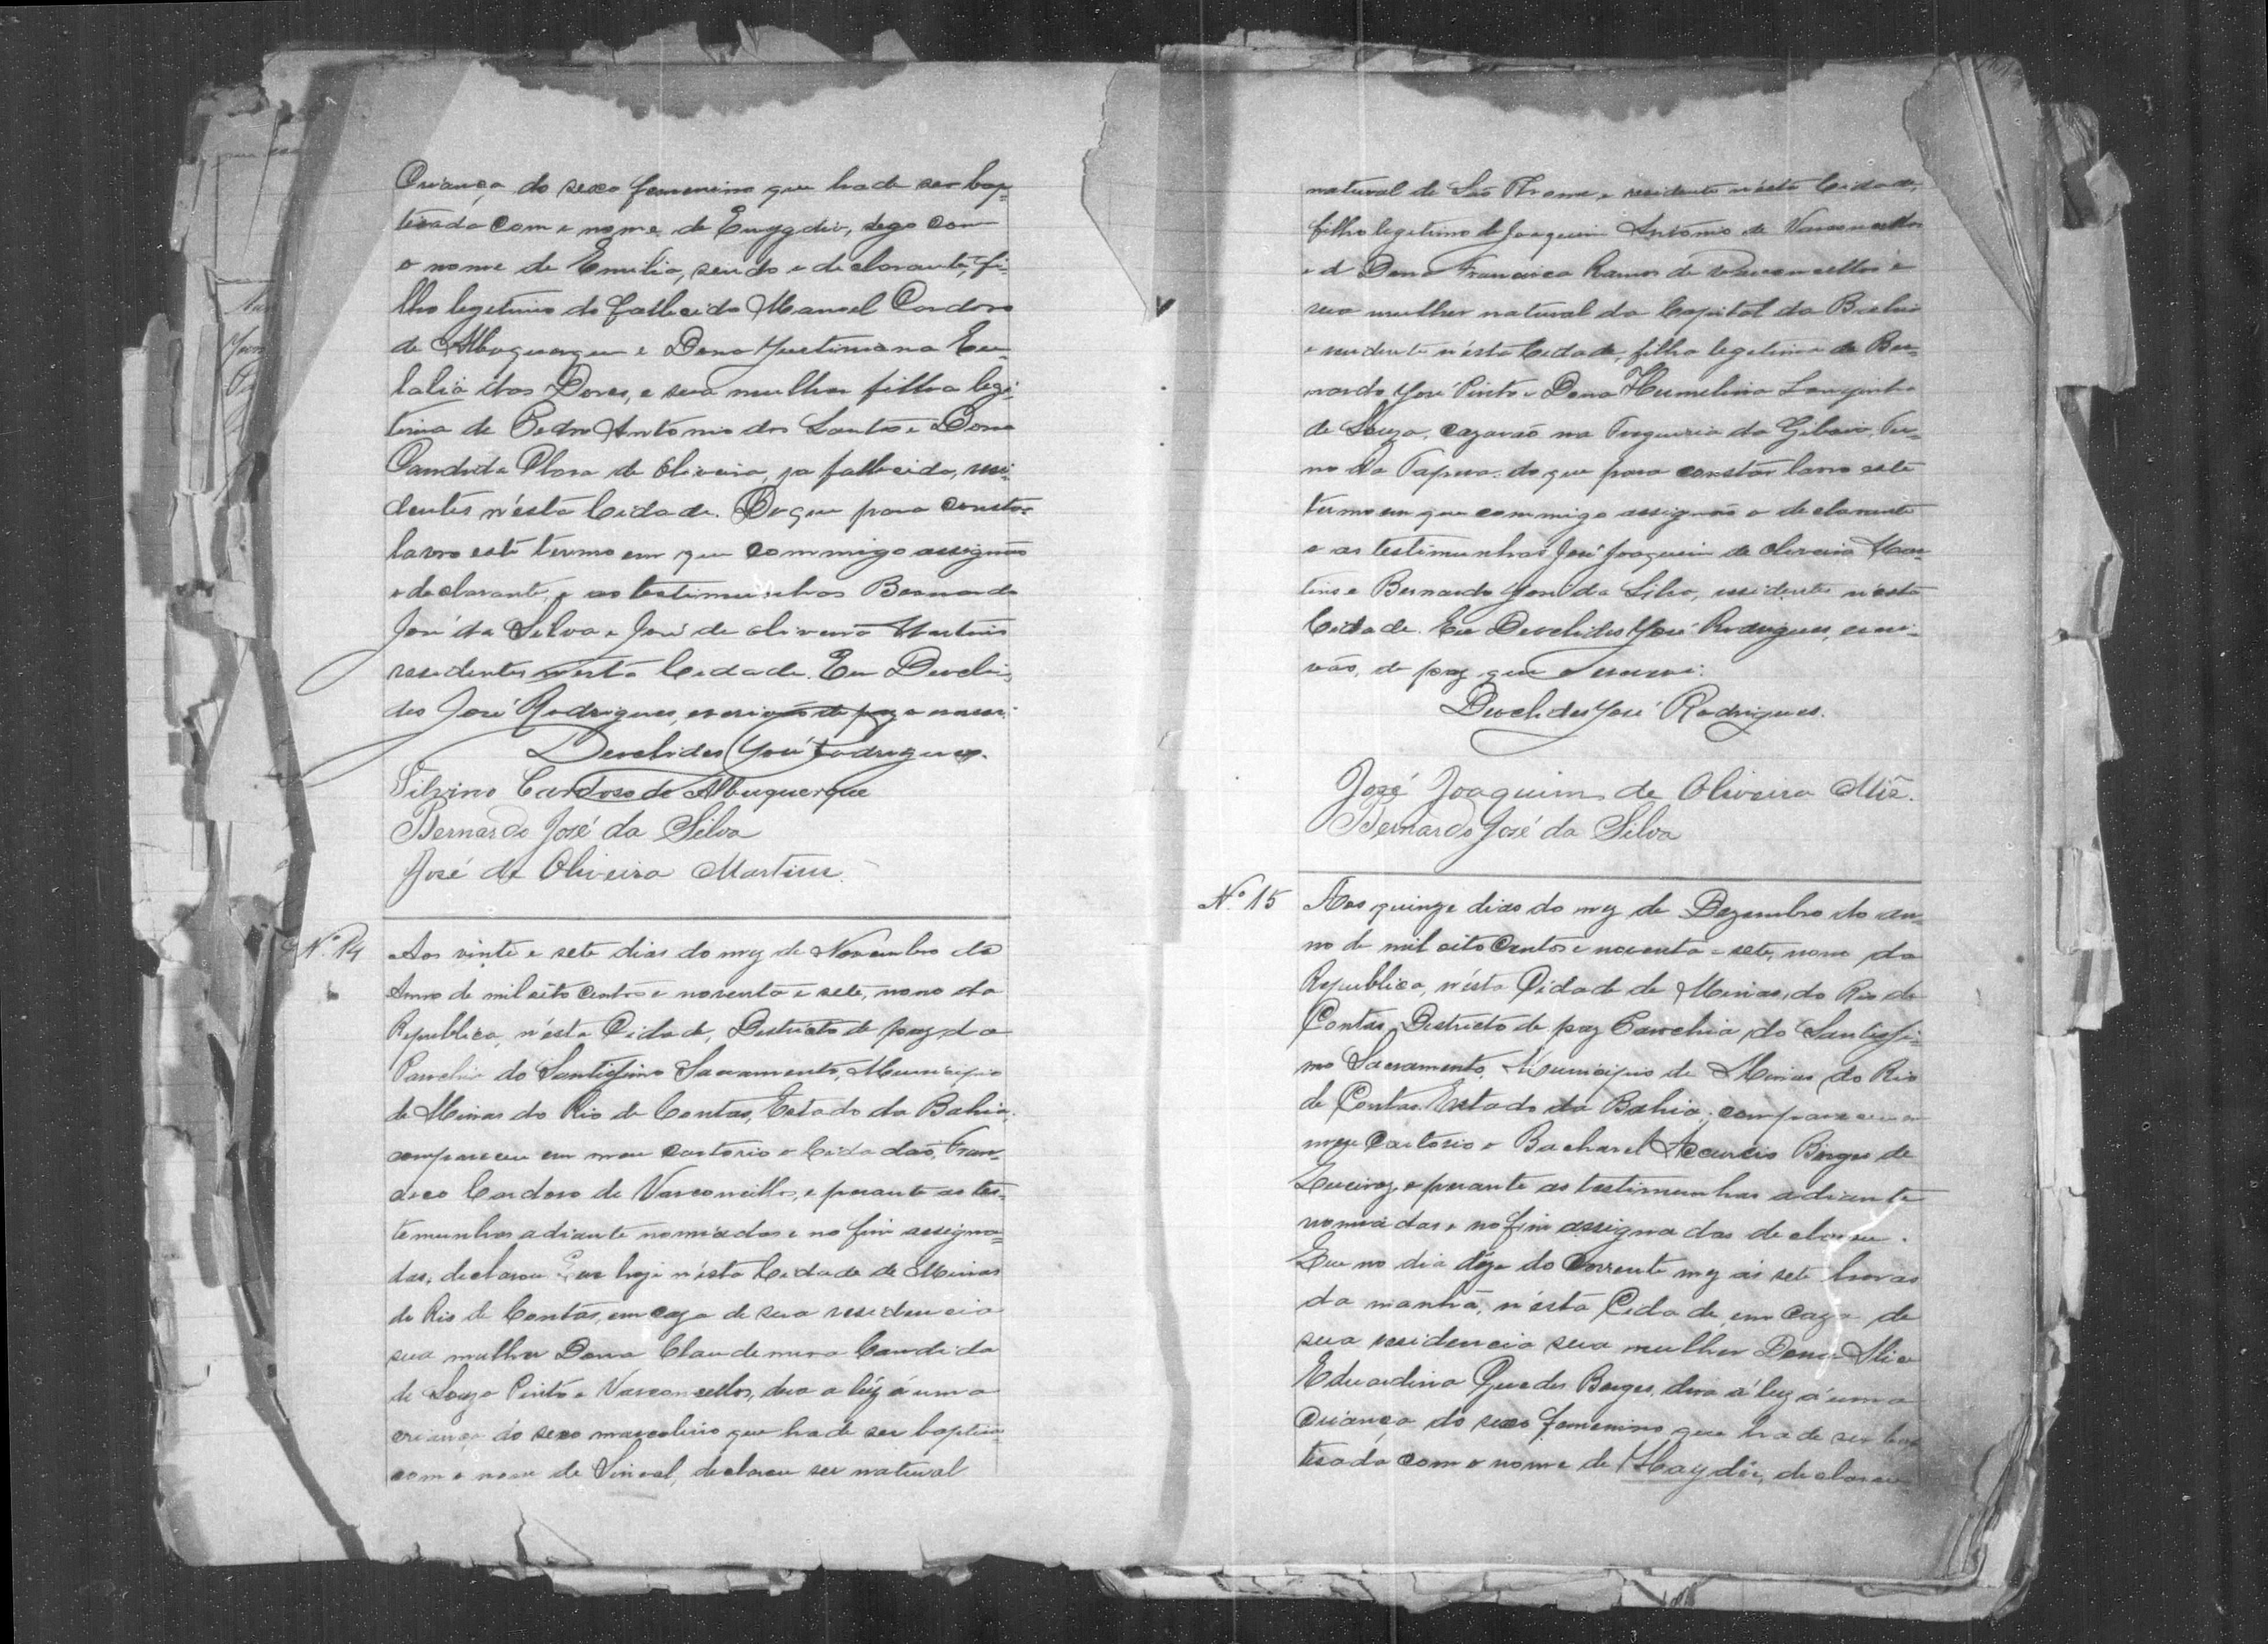 Criança do sexo femenino que hade ser bap-
tisada com o nome de Emygdia, digo com
o nome de Emilia, sendo o declarante, fi-
lho legitimo do fallecido Manoel Cardoso
de Albuquerque e Dona Justiniana Eu-
lalia das Dores, e sua mulher filha legi-
tima de Pedro Antonio dos Santos e Dona
Candida Clara de Oliveira, ja fallecida, resi-
dentes n'ésta Cidade. Do que para constar
lavro este termo em que commigo assignão
o declarante, e as testimunhas Bernardo
José da Silva e José de Oliveira Martins
residentes nesta Cidade. Eu Deocli-
des José Rodrigues, escrivão de paz o escrevi.
Deoclides José Rodrigues.
Silvino Cardoso de Albuquerque
Bernardo José da Silva
José de Oliveira Martins.
Nº 14 Aos vinte e sete dias do mez de Novembro do
Anno de mil oito centos e noventa e sete, nono da
Republica, n'ésta Cidade, Destricto de paz da
Parochia do Santissimo Sacramento, Municipio
de Minas do Rio de Contas, Estado da Bahia,
compareceu em meu cartorio o Cidadão, Fran-
cisco Cardoso de Vasconcellos, e perante as tes-
temunhas adiante nomiadas e no fim assigna-
das, declarou Que hoje n'ésta Cidade de Minas
do Rio de Contas, em caza de sua residencia
sua mulher Dona Claudemira Candida
de Souza Pinto e Vasconcellos, deo a luz á uma
criança do sexo mascolino que hade ser baptisa
com o nome de Sinval, declarou ser natural
natural de São Thome, e residente n'ésta Cidade,
filho legitimo de Joaquim Antonio de Vasconcellos
e d Dona Francisca Ramos de Vasconcellos e
sua mulher natural da Capital da Bahia
e residente n'ésta Cidade, filha legitima de Ber-
nardo José Pinto e Dona Humelina
de Souza, cazarão na Freguezia da
do que para constar lavro este
termo em que commigo assignão o declarante
e as testimunhas José Joaquim de Oliveira Mar-
tins e Bernardo José da Silva, residentes n'ésta
Cidade. Eu Deoclides José Rodrigues, escri-
vão, de paz que o escrevi.
Deoclides José Rodrigues.
José Joaquim de Oliveira Miz.
Bernardo José da Silva
Nº 15 Aos quinze dias do mez de Dezembro do an-
no de mil oito Centos e noventa e sete, nono da
Republica, n'ésta Cidade de Minas do Rio de
Contas, Destricto de paz Parochia do Santissi-
mo Sacramento, Municipio de Minas do Rio
de Contas Estado da Bahia, compareceu em
meu Cartorio o Bacharel Acurcio Borges de
e perante as testimunhas adiante
nomiadas e no fim assignadas declarou.
Que no dia doze do Corrente mez ás sete horas
da manhã, n'ésta Cidade, em caza de
sua residencia sua mulher Dona
Eduardina Guedes Borges, deo á luz á uma
Criança do sexo femenino que hade ser bap
tisada com o nome de Haydée, declarou